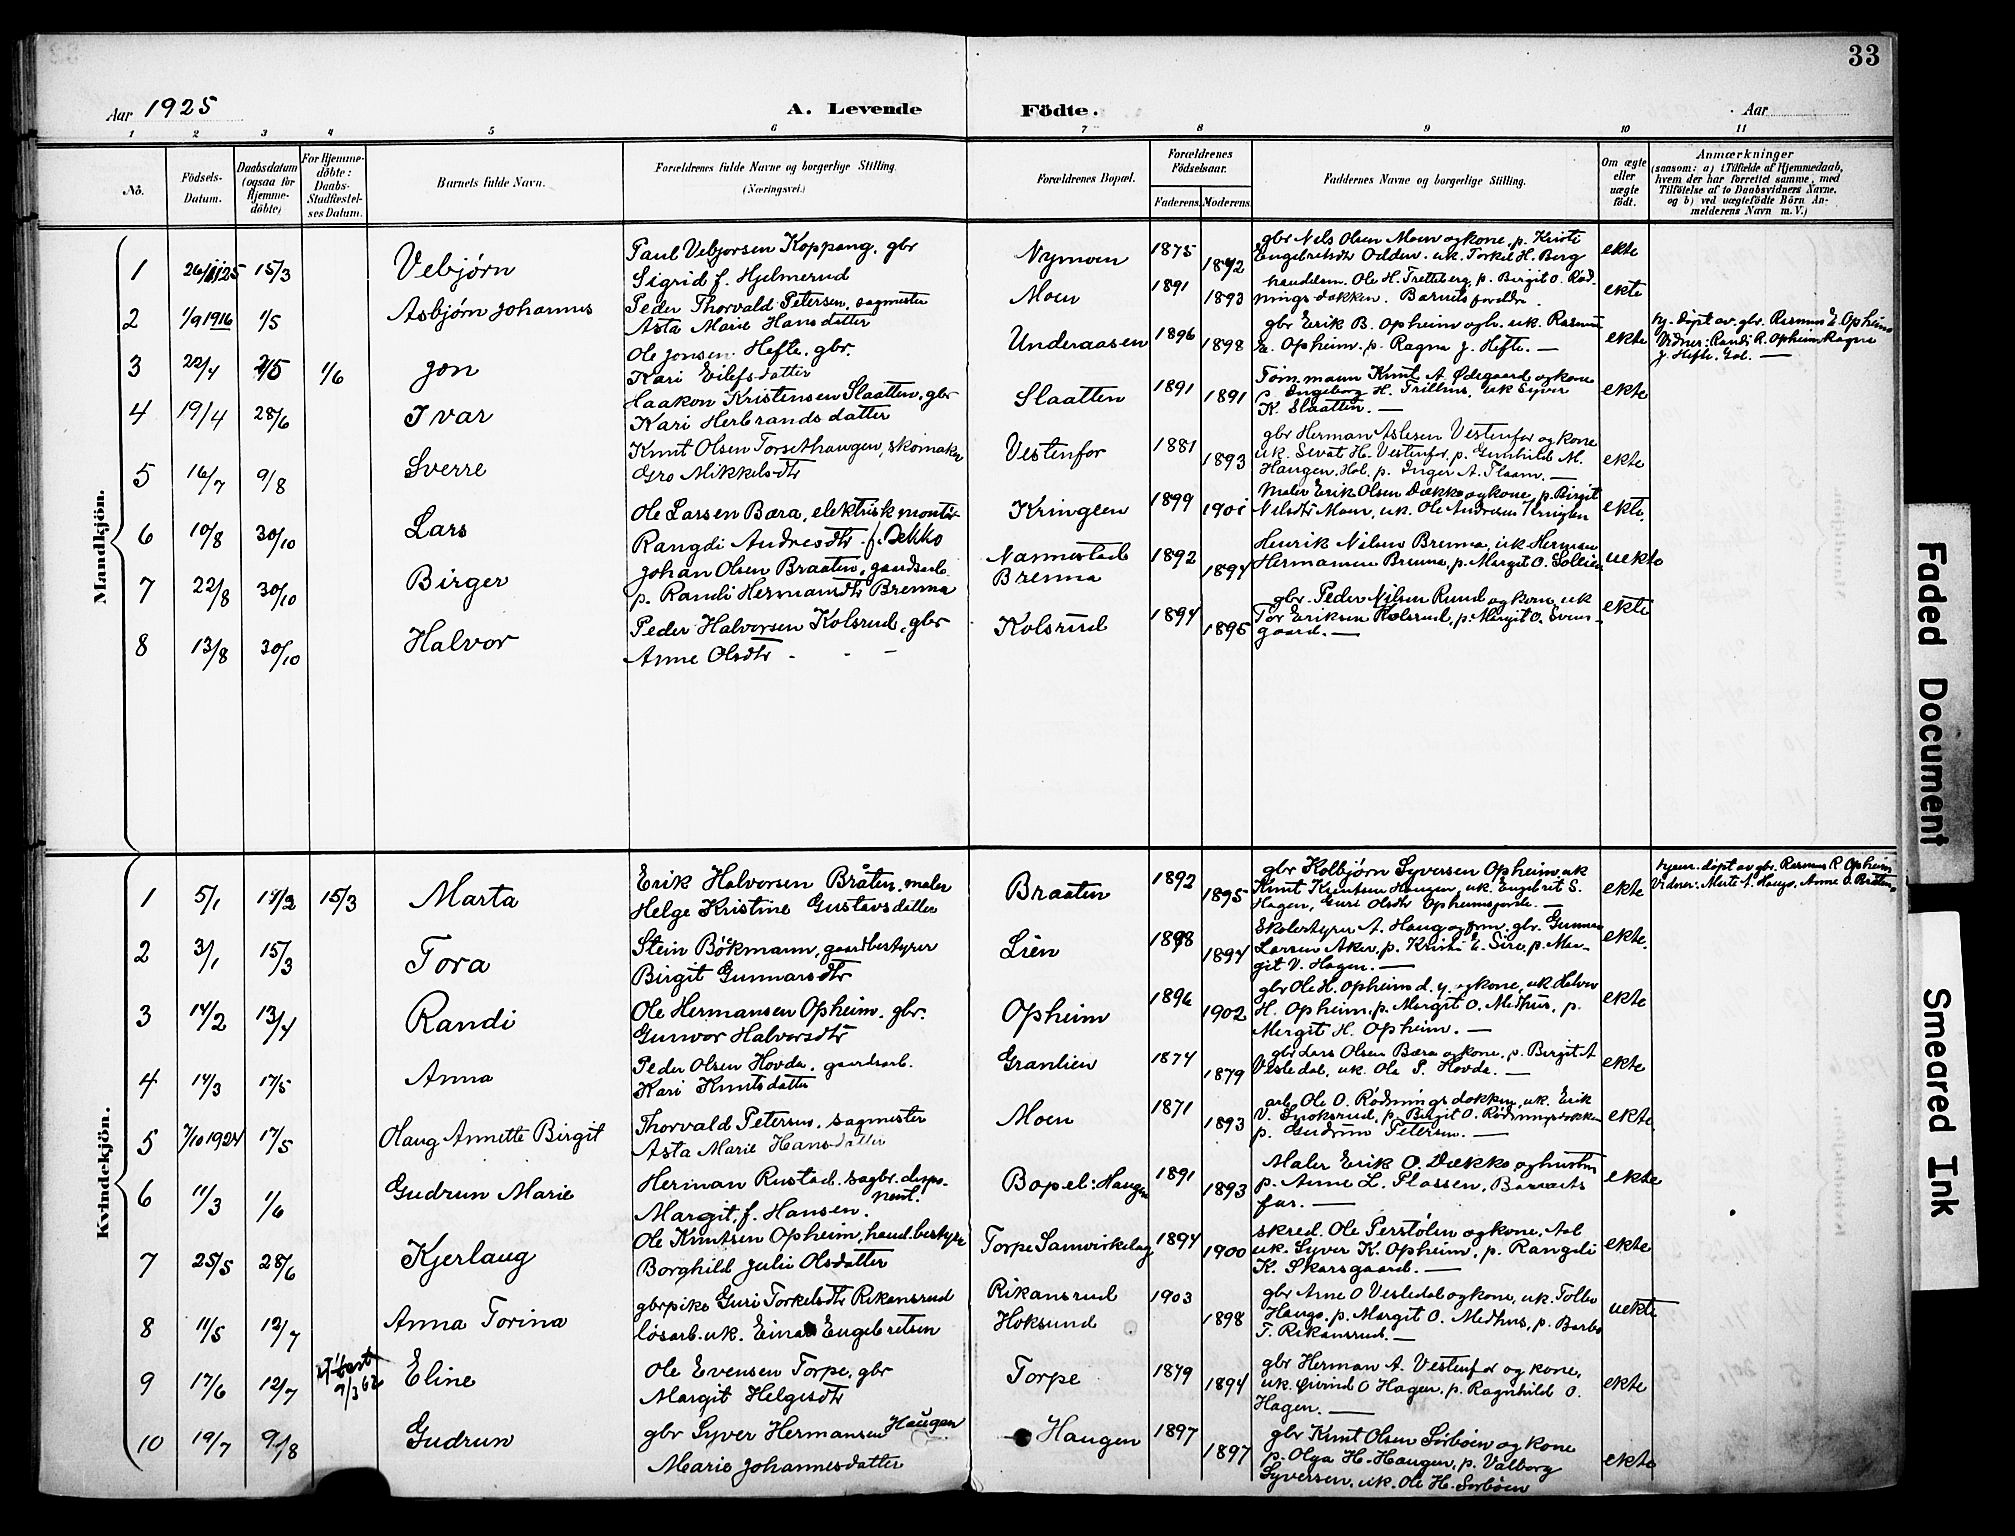 33
Aar 1925
A. Levende Födte.
Aar
1 2 3 4 5 6 7 8 9 10 11
No.
Födsels-Datum.
Daabsdatum (ogsaa for Hjemme-döbte)
For Hjemme-döbte: Daabs-Stadfæstel-ses Datum.
Barnets fulde Navn.
Forældrenes fulde Navne og borgerlige Stilling.
(Næringsvei.)
Forældrenes Bopæl.
Forældrenes Födselsaar.
Faderens Moderens
Faddernes Navne og borgerlige Stilling.
Om ægte eller uægte födt.
Anmærkninger
(saasom: a) i Tilfælde af Hjemmedaab, hvem der har forrettet samme, med Tilföielse af to Daabsvidners Navne. og b) ved uægtefödte Börn An-melderens Navn m. V.)
Mandkjön.
1 15/3 Vebjørn
Paul Vebjorsen Koppang. gbr
Sigrid f. Hjelmerud
Nymoen 1875
gbr Nels Olsen Moen og kone, p. Kristi
Engebretsdtr Odden. uk. Torkel H. Berg
ekte
2 1/9 1916 1/5 Asbjørn Johannes
Peder Thorvald Petersen, sagmester
Asta Marie Hansdatter
Moen 1891 1893
Ole H. Tretteberg, p. Birgit O. Rød-
ningsdokken. Barnets foreldre.
ekte
3 22/4 2/5 1/6 Jon
Ole Jonsen Hefte. gbr.
Kari Eilefsdatter
Underaasen 1896 1898
gbr Erik B. Opheim og h. uk. Rasmus
E. Opheim. p. Ragna J. Hefte. —
ekte
hj. døpt av gbr. Rasmus E. Opheim
Vidner: Randi R. Opheim Ragna
J. Hefte. Gol. —
4 19/4 28/6 Ivar
Haakon Kristensen Slaatten. gbr
Kari Herbrandsdatter
Slaatten 1891 1891
Tømmann Knut A. Ødegaard og kone
p. Ingeborg H. Trillhus, uk Syver
K. Slaatten. —
ekte
5 16/7 9/8 Sverre
Knut Olsen Torsethaugen, skomaker
Gro Mikkelsdtr
Vestenfor 1881 1893
gbr Herman Aslesen Vestenfor og kone
uk. Sevat H. Vestenfor, p. Gunhild M.
Haugen, Hol. p. Inger A. Flaam. —
ekte
6 10/8 30/10 Lars
Ole Larsen Bæra, elektrisk montør
Rangdi Andresdtr. f. Dekko
Kringlen 1899 1901
Maler Erik Olsen Dækko og kone, p. Birgit
Nelsdtr Moen, uk. Ole Andresen Kringlen
ekte.
7 22/8 30/10 Birger
Johan Olsen Braaten, gaardsarb.
p. Randi Hermansdtr Brenna
Nannestad
Brenna
1892 1894
Henrik Nilsen Brenna, uk Herman
Hermansen Brenna, p. Margit O. Sollien
uekte
8 13/8 30/10 Halvor
Peder Halvorsen Kolsrud, gbr
Anne Olsdtr - - -
Kolsrud 1894 1895
gbr. Peder Nilsen Ruud og kone, uk
Tor Eriksen Kolsrud, p. Margit O. Svens-
gaard. —
ekte
Kvindekjön.
1 5/1 15/3 Marta
Erik Halvorsen Bråten, maler
Helge Kristine Gustavsdatter
Braaten 1892 1895
gbr Kolbjørn Syversen Opheim, uk
Knut Knutsen Haugen, uk. Engebrit S.
Hagen, Guri Olsdtr Opheimsjorde. —
ekte
hjem. døpt av gbr. Rasmus R. Opheim
Vidner: Marte A. Haugo, Anne O. Bråten
2 3/1 15/3 Tora
Stein Bökmann, gaardbestyrer
Birgit Gunnarsdtr
Lien 1894
Skolestyrer A. Haug og frm. gbr. Gunnar
Larsen Aker, p. Kristi E. Sire, p. Mar-
git V. Hagen. —
ekte.
3 14/2 13/4 Randi
Ole Hermansen Opheim. gbr.
Gunvor Halvorsdtr
Opheim 1896 1902
gbr Ole H. Opheim d. y. og kone, uk Halvor
H. Opheim, p. Margit O. Medhus, p.
Margit H. Opheim. —
ekte
4 14/3 17/5 Anna
Peder Olsen Hovde. gaardsarb.
Kari Knutsdatter
Granlien 1874 1879
gbr Lars Olsen Bæra og kone, p. Bergit A
Vesledal, uk. Ole P. Hovde. —
ekte
5 7/10 1924 17/5 Olaug Annette Birgit
Thorvald Petersen, sagmester
Asta Marie Hansdatter
Moen 1871 1893
arb. Ole O. Rødningsdokken, uk. Erik
V. Snoksrud, p. Birgit O. Rødningsdokken
p. Gudrun Petersen. —
ekte.
6 11/3 1/6 Gudrun Marie
Herman Rustad. sagbr. dispo-
nent.
Margit f. Hansen.
Bopel: Haugen 1891 1893
Maler Erik O. Dækko og hustru
p. Anne L. Plassen, Barnets
far. —
ekte
7 25/5 28/6 Kjerlaug
Ole Knutsen Opheim, hand.bestyrer
Borghild Julie Olsdatter
Torpe Samvirkelag 1894 1900
skred. Ole Perstølen og kone, Aal
uk. Syver K. Opheim, p. Rangdi
K. Skarsgaard. —
ekte
8 11/5 12/7 Anna Torina
gbrpike Guri Torkelsdtr Rikansrud
løsarb. uk. Einar Engebretsen
Rikansrud
Hoksund
1903 1898
gbr Arne O Vesledal og kone, uk. Tollev
Haugo, p. Margit O. Medhus, p. Barbo
T. Rikansrud. —
uekte
9 17/6 12/7 Eline
Ole Evensen Torpe, gbr
Margit Helgesdtr
Torpe 1879 1894
gbr Herman A. Vestenfor og kone,
uk. Øivind O Hagen, p. Ragnhild O.
Hagen. —
ekte
10 19/7 9/8 Gudrun
gbr Syver Hermansen Haugen
Marie Johannesdatter
Haugen 1897 1897
gbr Knut Olsen Sørbøen og kone
p. Olga H. Haugen, p. Valborg
Syversen, uk. Ole H. Sørbøen
ekte
Faded Document
Smeared Ink